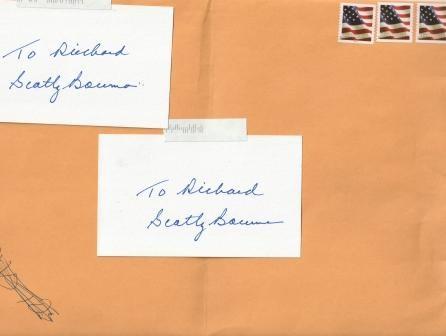 To Richard
Scotty Bowman
To Richard
Scotty Bowman